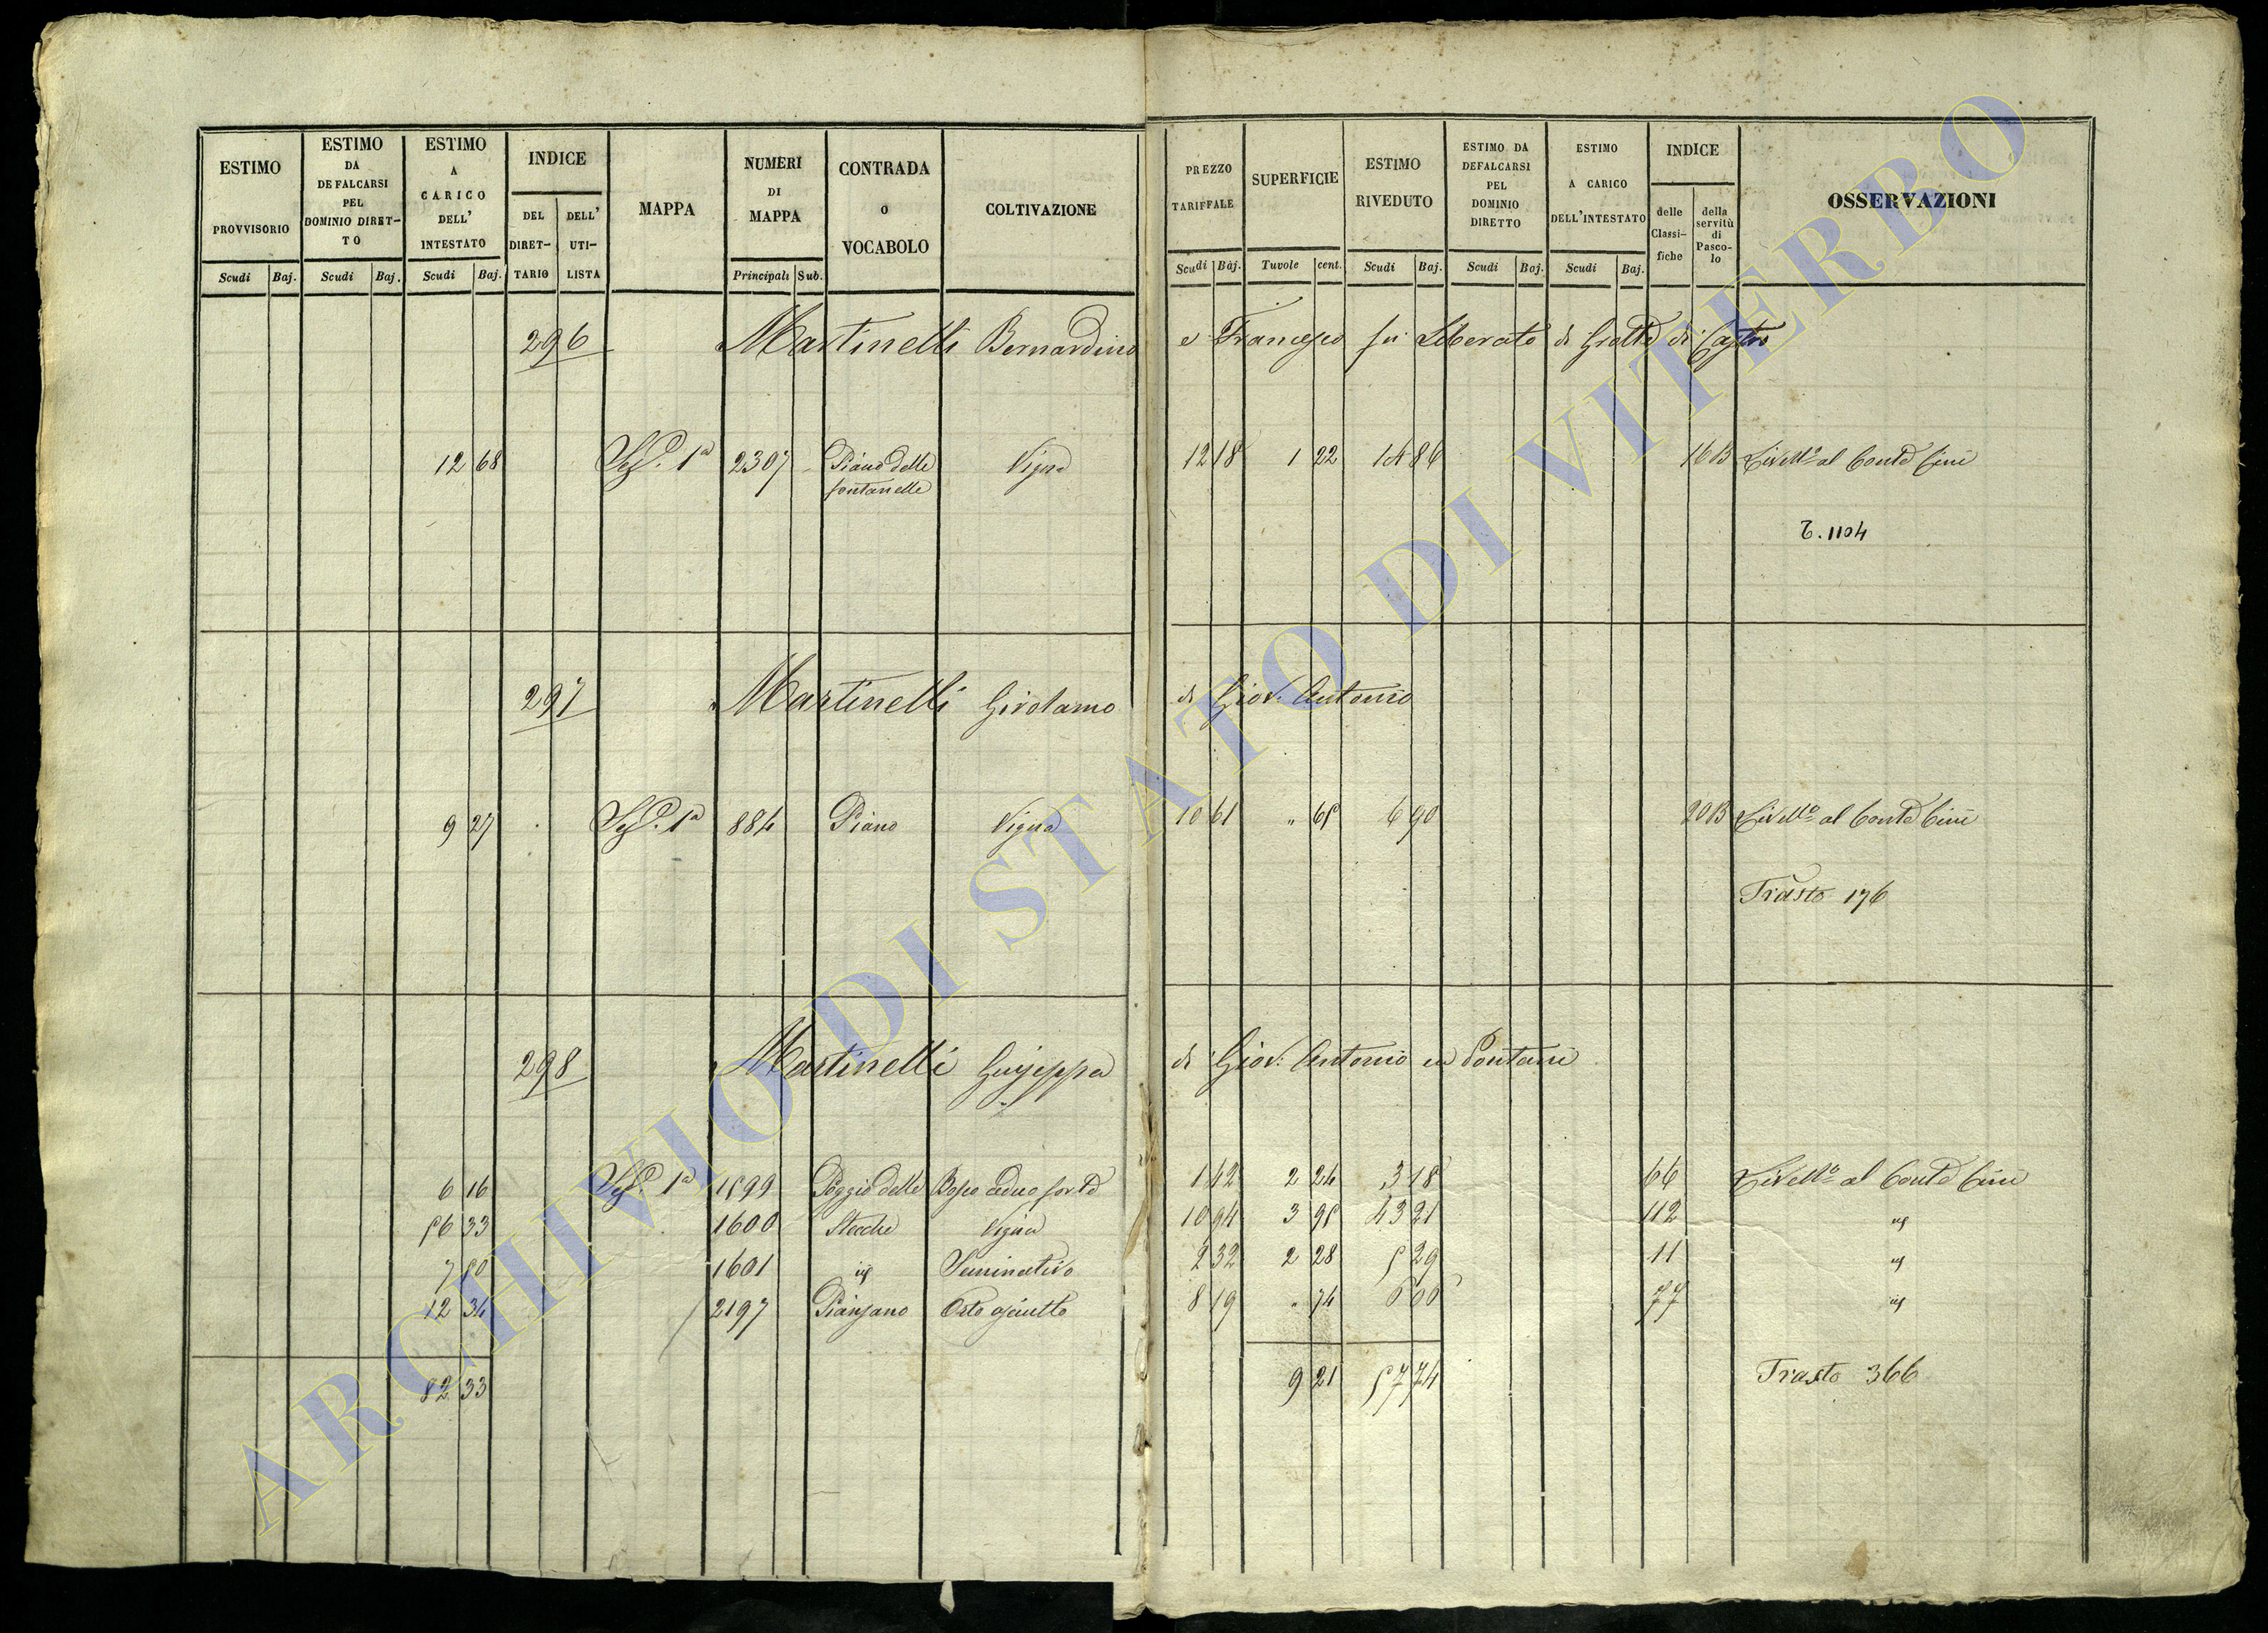 ESTIMO PROVVISORIO Scudi Baj.
ESTIMO DA DEFALCARSI PEL DOMINIO DIRET-TO Scudi Baj.
ESTIMO A CARICO DELL' INTESTATO Scudi Baj.
INDICE DEL DIRET-TARIO DELL' UTI-LISTA
MAPPA
NUMERI DI MAPPA Principali Sub.
CONTRADA O VOCABOLO
COLTIVAZIONE
PREZZO TARIFFALE Scudi Baj.
SUPERFICIE Tavole cent.
ESTIMO RIVEDUTO Scudi Baj.
ESTIMO DA DEFALCARSI PEL DOMINIO DIRETTO Scudi Baj.
ESTIMO A CARICO DELL'INTESTATO Scudi Baj.
INDICE delle Classi-fiche della servitù di Pasco-lo
OSSERVAZIONI
296 Martinelli Bernardino e Francesco fu Liberato di Grotte di Castro
12 68 Sez.e 1a 2307 Piano delle fontanelle Vigna 12 18 1 22 14 86 16 B Livello al Conte Cini
T. 1104
297 Martinelli Girolamo di Giov: Antonio
9 27 Sez.e 1a 884 Piano Vigna 10 61 " 65 6 90 20 B Livello al Conte Cini
Trasto 176
298 Martinelli Giuseppa di Giov: Antonio in Pontani
6 16 Sez.e 1a 1599 Poggio delle Bosco ceduo forte 1 42 2 24 3 18 66 Livello al Conte Cini
56 33 1600 Stecche Vigna 10 94 3 95 43 21 112 id
7 50 1601 id Seminativo 2 32 2 28 5 29 11 id
12 34 2197 Pianzano Orto asciutto 8 19 " 74 6 06 77 id
82 33 9 21 57 74 Trasto 366
ARCHIVIO DI STATO DI VITERBO